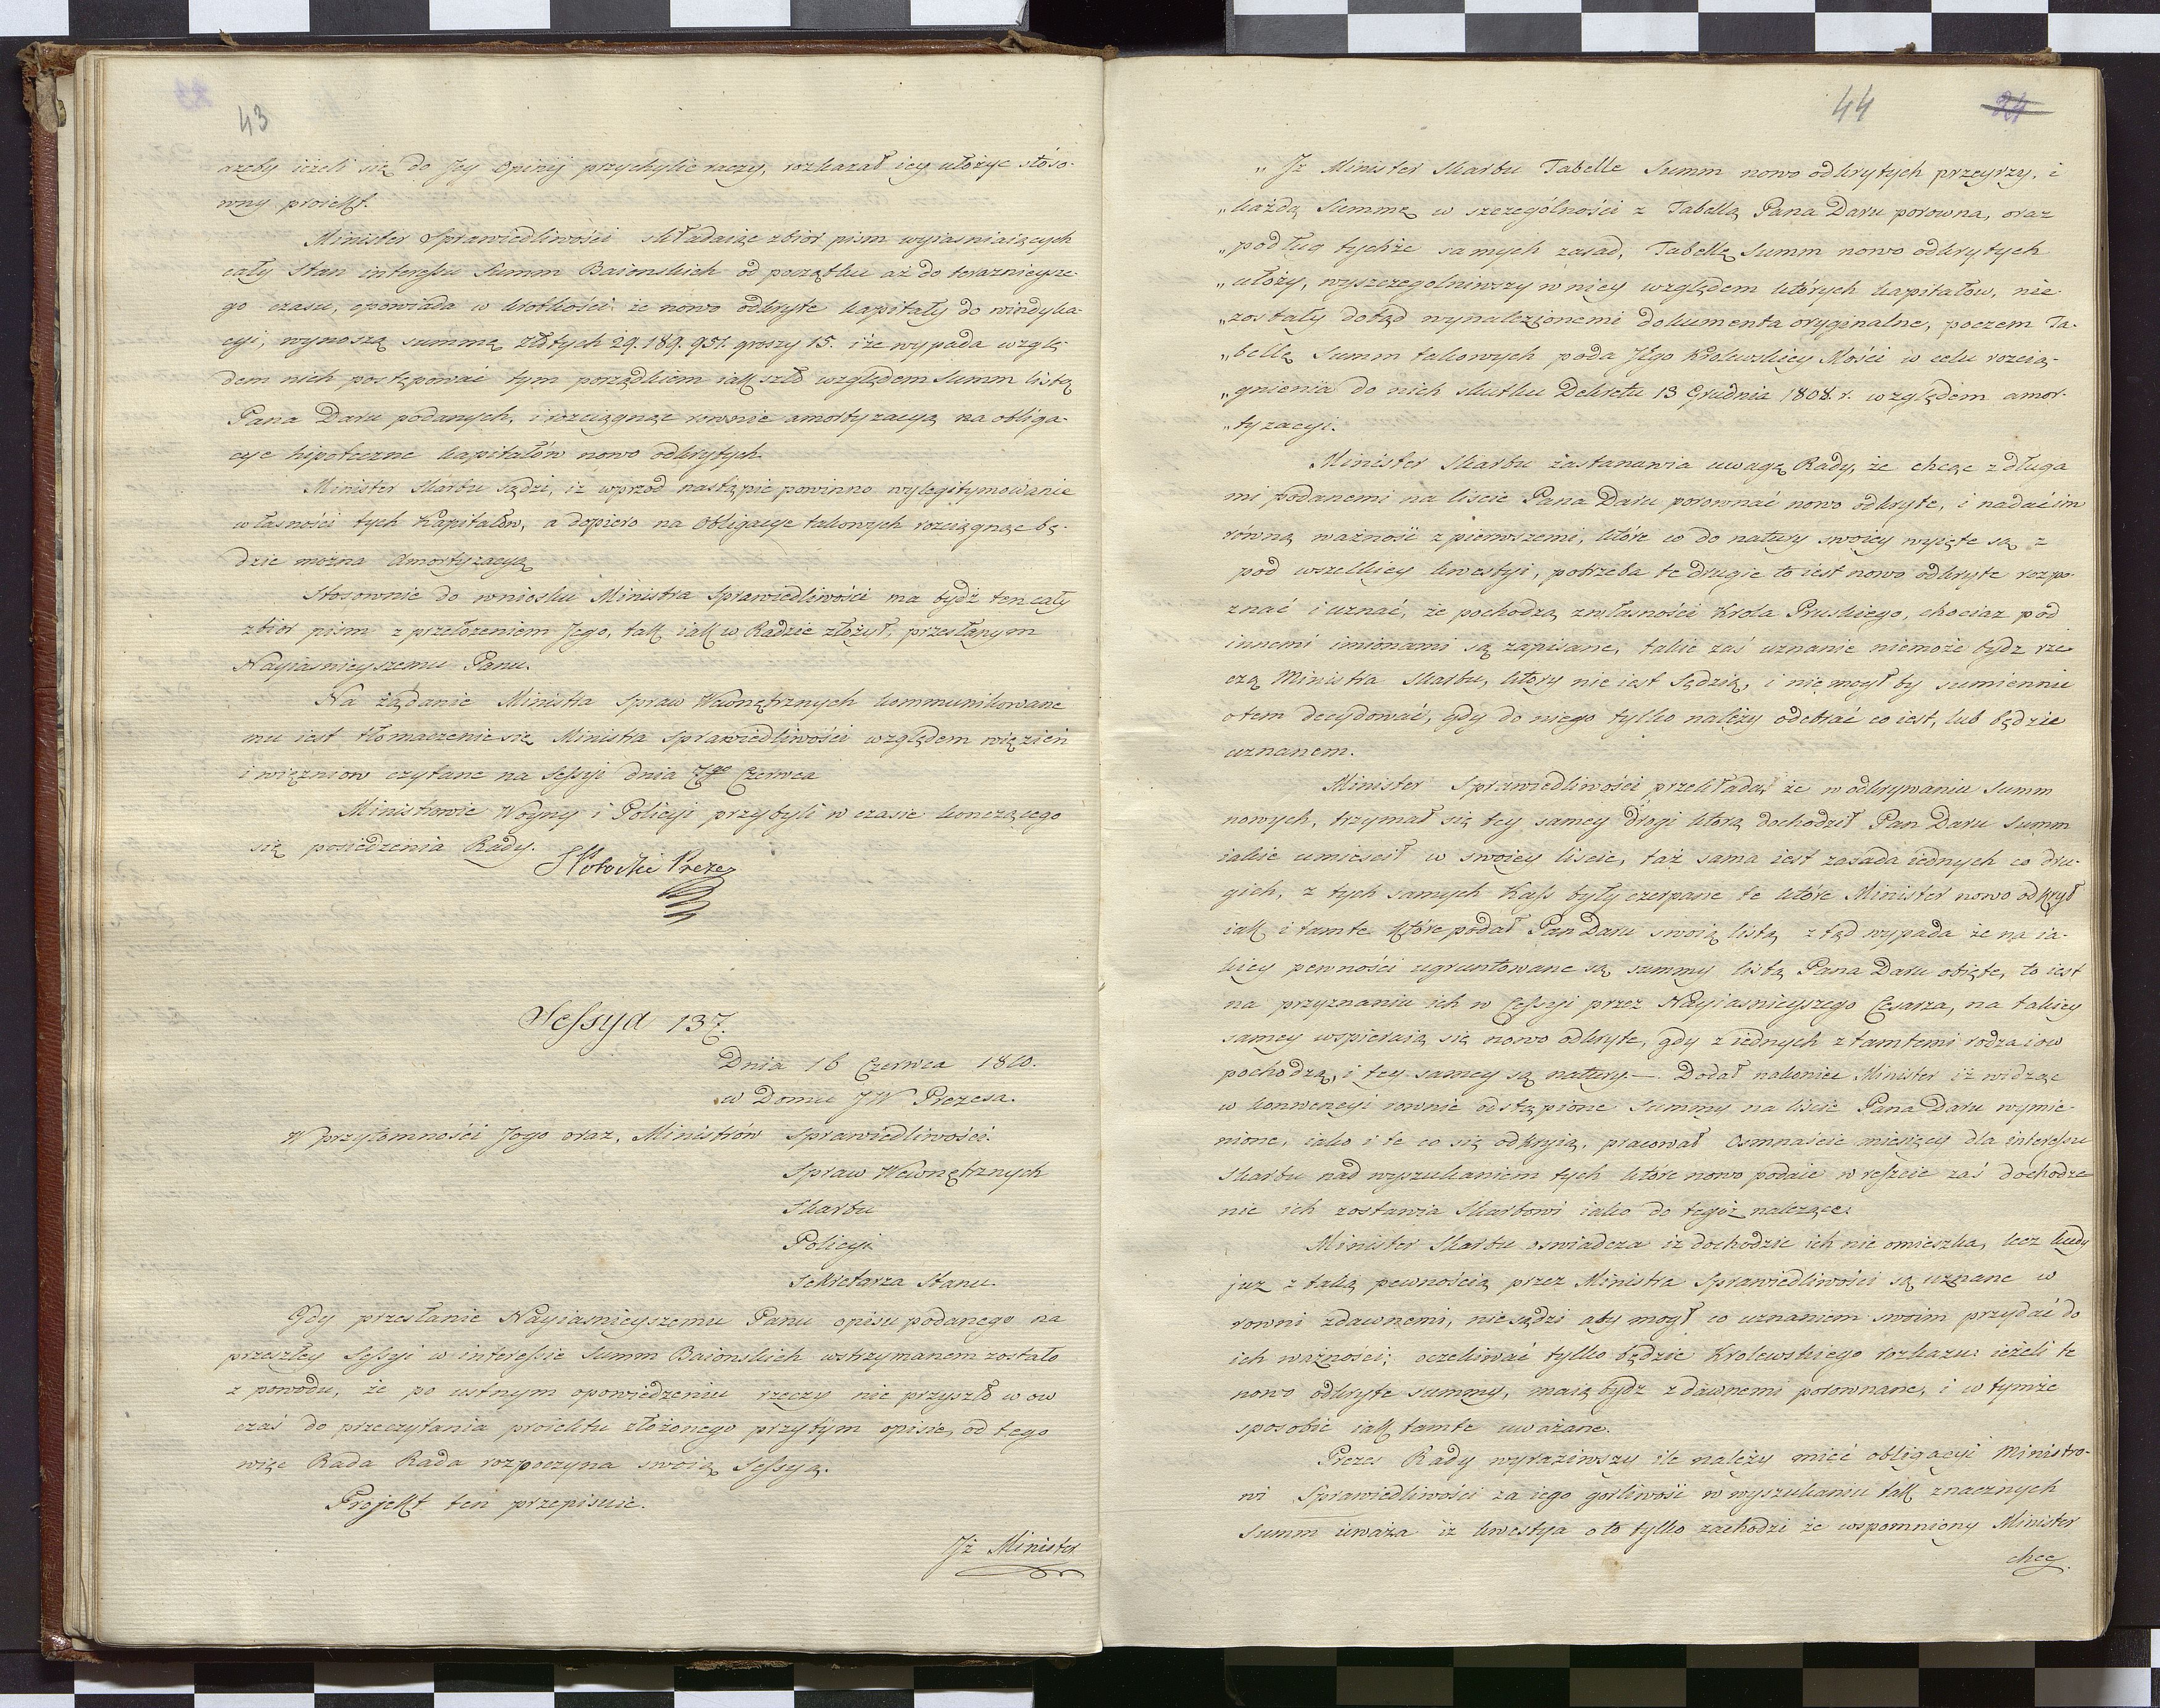 43
ażeby ieżeli się do Jey Opinij przychylić raczy, rozkazał iey ułożyć stoso-
wny proiekt.
Minister Sprawiedliwości składaiąc zbior pism wyiasniaiących
cały Stan interessu Summ Baionskich od początku aż do teraznieysze-
go czasu, opowiada w krotkości że nowo odkryte kapitały do windyka-
cyi, wynoszą summę złłotych 29.189.951. groszy 15. i że wypada wzglę-
dem nich postępować tym porządkiem iak szło względem Summ listą
Pana Daru podanych, i rozciągnąc rownie amortyzacyą na obliga-
cye hipoteczne kapitałów nowo odkrytych
Minister Skarbu sądzi, iż wprzod nastąpic powinno wylegitymowanie
własności tych Kapitałow, a dopiero na Obligacye takowych rozciągnąć bę-
dzie można Amortyzacyą
Stosownie do wniosku Ministra Sprawiedliwości ma bydź ten cały
zbior pism z przełożeniem Jego, tak iak w Radzie złożył, przesłanym
Nayiasnieyszemu Panu.
Na żądanie Ministra Spraw Wewnętrznych kommunikowane
mu iest tłomaczenie się Ministra Sprawiedliwości względem więzień
i więzniow czytane na Sessyi dnia 7go Czerwca
Ministrowie Woyny i Policyi przybyli w czasie konczącego
się posiedzenia Rady.
SPotocki Prezes
Sessya 137.
Dnia 16 Czerwca 1810.
w Domu JW Prezesa.
W przytomności Jego oraz, Ministrów Sprawiedliwości.
Spraw Wewnętrznych
Skarbu
Policyi
Sekretarza Stanu.
Gdy przesłanie Nayiasnieyszemu Panu opisu podanego na
przeszłey Sessyi w interessie Summ Baionskich wstrzymanem zostało
z powodu, że po ustnym opowiedzeniu rzeczy nie przyszło w ow
czas do przeczytania proiektu złożonego przy tym opisie, od tego
więc Rada Rada rozpoczyna swoią Sessyą.
Projekt ten przepisuie.
Jż Minister
44
24
„Jż Minister Skarbu Tabelle Summ nowo odkrytych przeyrzy, i
„każdą Summę w szczególności z Tabellą Pana Daru porowna, oraz
„podług tychże samych zasad, Tabellę Summ nowo odkrytych
„ułoży, wyszczegolniwszy w niey względem których kapitałow, nie-
„zostały dotąd wynalezionemi dokumenta oryginalne, poczem Ta-
„bellę Summ takowych poda Jego Krolewskiey Mości w celu rozcią-
„gnienia do nich skutku Dekretu 13 Grudnia 1808. r. względem amor-
„tyzacyi.
Minister Skarbu zastanawia uwagę Rady, że chcąc z długa
mi podanemi na liscie Pana Daru porownać nowo odkryte, i nadać im
równą ważność z pierwszemi, które co do natury swoiey wyięte są z
pod wszelkiey kwestyi, potrzeba te drugie to iest nowo odkryte rozpo-
znać i uznać, że pochodzą z własności Krola Pruskiego, chociaz pod
innemi imionami są zapisane, takie zaś uznanie niemoże bydz rze-
czą Ministra Skarbu, który nie iest Sędzią, i nie mogł by sumiennie
o tem decydować, gdy do niego tylko należy odebrać co iest, lub będzie
uznanem.
Minister Sprawiedliwości przekłada, że w odkrywaniu Summ
nowych, trzymał się tey samey drogi którą dochodził Pan Daru Summ
iakie umiescił w swoiey liscie, taż sama iest zasada iednych co dru-
gich, z tych samych Kass były czerpane te które Minister nowo odkrył
iak i tamte które podał Pan Daru swoią listą z tąd wypada że na ia-
kiey pewności ugruntowane są summy listą Pana Daru obięte, to iest
na przyznaniu ich w Cessyi przez Nayiasnieyszego Cesarza, na takiey
samey wspieraią się nowo odkryte, gdy z iednych z tamtemi rodzaiow
pochodzą, i tey samey są natury. — Dodał nakoniec Minister iż widząc
w konwencyi rownie odstąpione Summy na liście Pana Daru wymie-
nione, iako i te co się odkryią, pracował Osmnaście miesięcy dla interessu
Skarbu nad wyszukaniem tych które nowo podaie w reszcie zaś dochodze
nie ich zostawia Skarbowi iako do tegoż należące.
Minister Skarbu oswiadcza iż dochodzic ich nie omieszka, lecz kiedy
juz z taką pewnością przez Ministra Sprawiedliwości są uznane w
rowni z dawnemi, nie sądzi aby mogł co uznaniem swoim przydać do
ich ważności; oczekiwać tylko będzie Krolewskiego rozkazu: ieżeli te
nowo odkryte summy, maią bydz z dawnemi porownane, i w tymże
sposobie iak tamte uważane.
Prezes Rady wyraziwszy ile należy mieć obligacyi Ministro-
wi Sprawiedliwości za iego gorliwość w wyszukaniu tak znacznych
Summ uważa iż kwestya o to tylko zachodzi że wspomniony Minister
chce